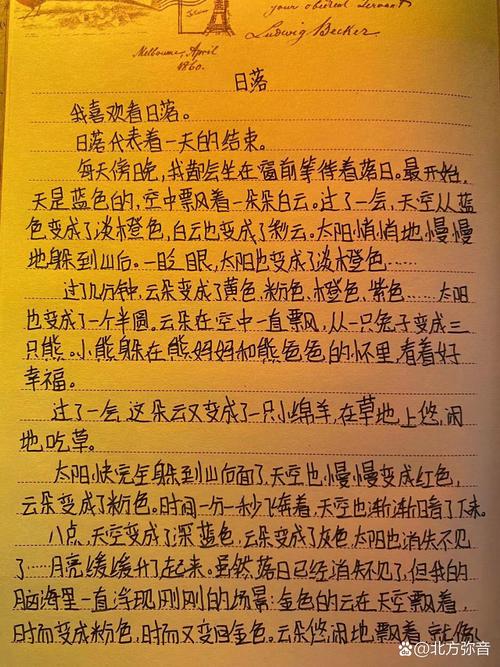 your obedient Servant
Ludwig Becker.
Melbourne, April
1860.
日落
我喜欢看日落。
日落代表着一天的结束。
每天傍晚,我都会坐在窗前等待着落日。最开始,
天是蓝色的,空中飘着一朵朵白云。过了一会,天空从蓝
色变成了淡橙色,白云也变成了彩云。太阳悄悄地、慢慢
地躲到山后。一眨眼,太阳也变成了淡橙色……
过几分钟,云朵变成了黄色、粉色、橙色、紫色……太阳
也变成了一个半圆。云朵在空中一直飘,从一只兔子变成三
只熊。小熊躲在熊妈妈和熊爸爸的怀里,看着好
幸福。
过了一会,这朵云又变成了一只小绵羊,在草地上悠闲
地吃草。
太阳快完全躲到山后面了,天空也慢慢变成红色,
云朵变成了粉色。时间一分一秒飞奔着,天空也渐渐暗了下来。
八点,天空变成了深蓝色,云朵变成了灰色,太阳也消失不见
了……月亮缓缓升了起来。虽然落日已经消失不见了,但我的
脑海里一直浮现刚刚的场景:金色的云在天空飘着,
时而变成粉色,时而又变回金色。云朵悠闲地飘着,
百家号@北方弥音